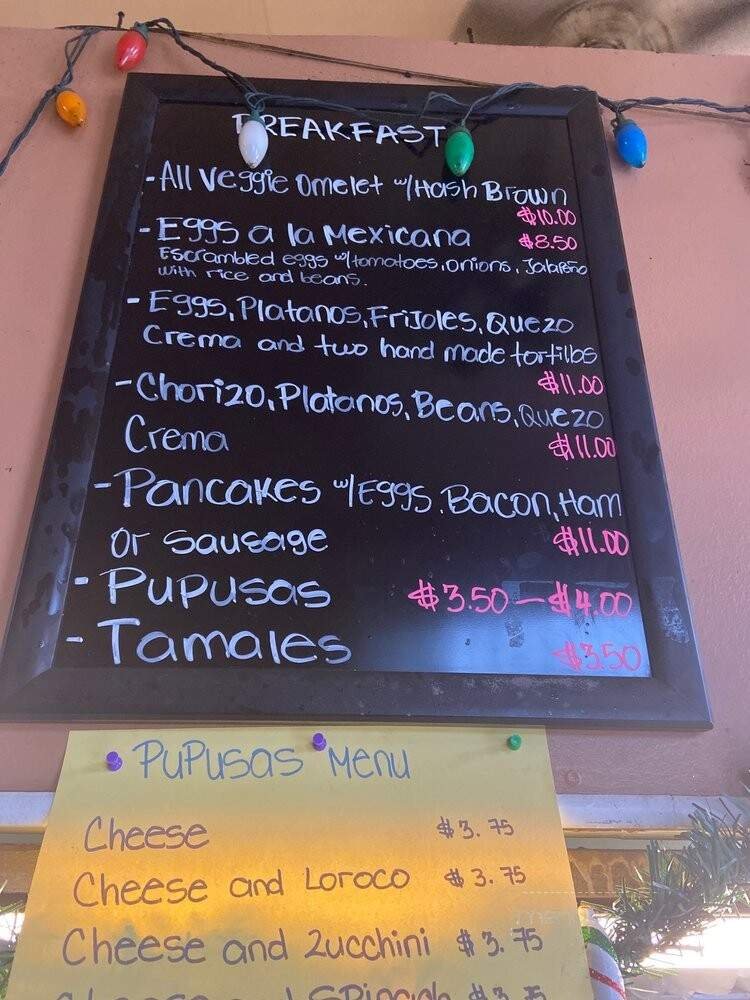 BREAKFAST
- All Veggie Omelet w/Hash Brown
$10.00
- Eggs a la Mexicana $8.50
Escrambled eggs w/tomatoes, onions, Jalapeño
with rice and beans.
- Eggs, Platanos, Frijoles, Quezo
Crema and two hand made tortillas
$11.00
- Chorizo, Platanos, Beans, Quezo
Crema $11.00
- Pancakes w/Eggs, Bacon, Ham
or Sausage $11.00
- Pupusas $3.50 - $4.00
- Tamales $3.50
PuPusas Menu
Cheese $3.75
Cheese and Loroco $3.75
Cheese and Zucchini $3.75
Cheese and Spinach $3.75